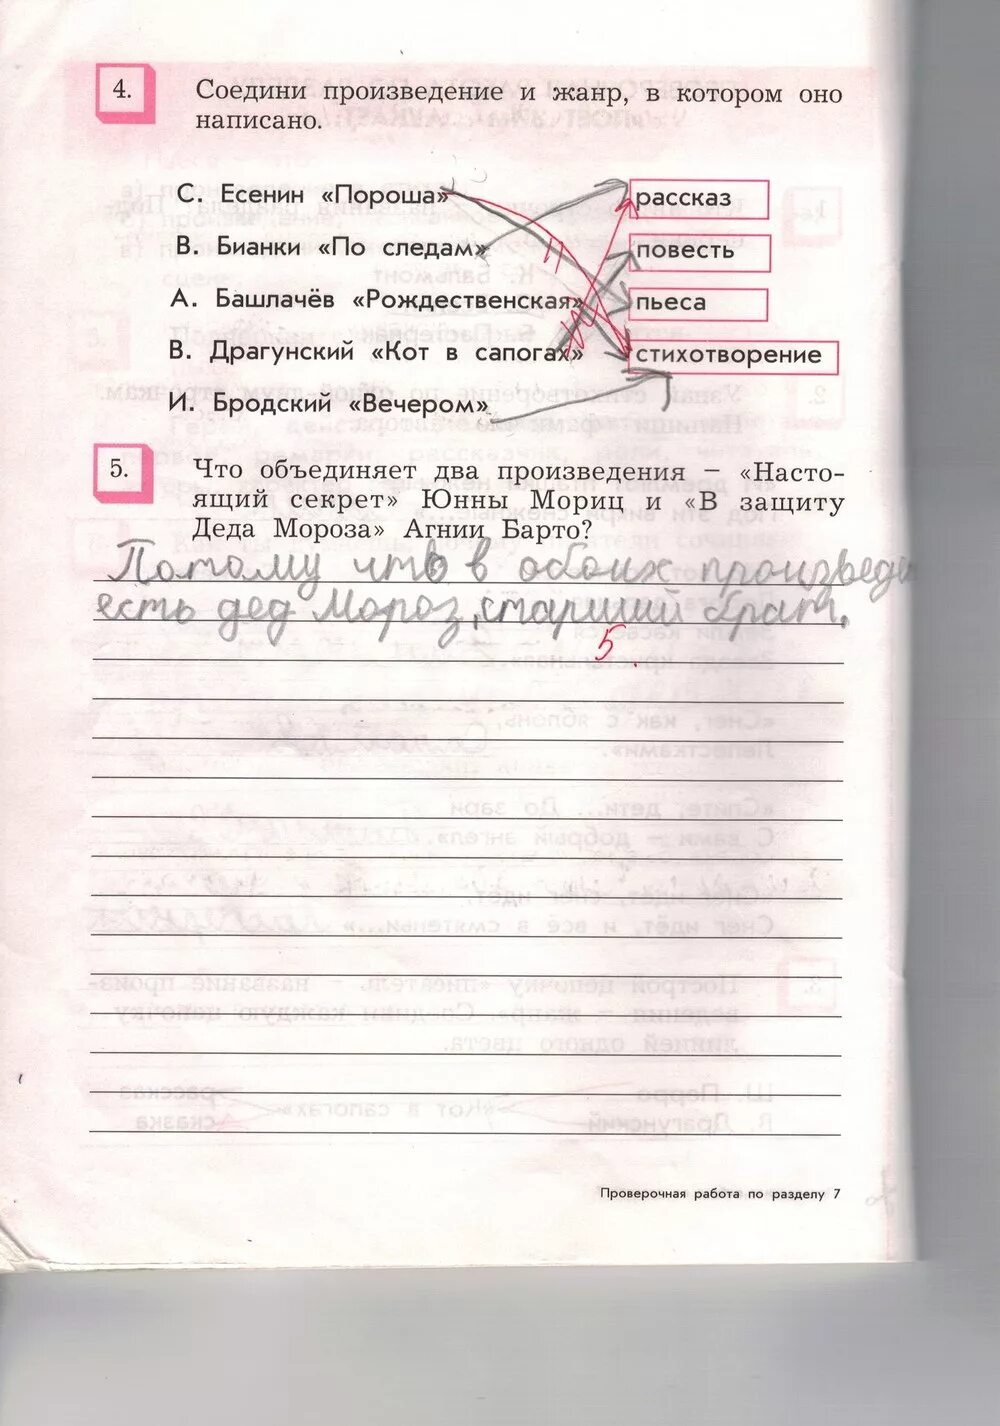 4. Соедини произведение и жанр, в котором оно
написано.
С. Есенин «Пороша» рассказ
В. Бианки «По следам» повесть
А. Башлачёв «Рождественская» пьеса
В. Драгунский «Кот в сапогах» стихотворение
И. Бродский «Вечером»
5. Что объединяет два произведения – «Насто-
ящий секрет» Юнны Мориц и «В защиту
Деда Мороза» Агнии Барто?
Потому что в обоих произведи
есть дед Мороз, старший брат.
5.
Проверочная работа по разделу 7